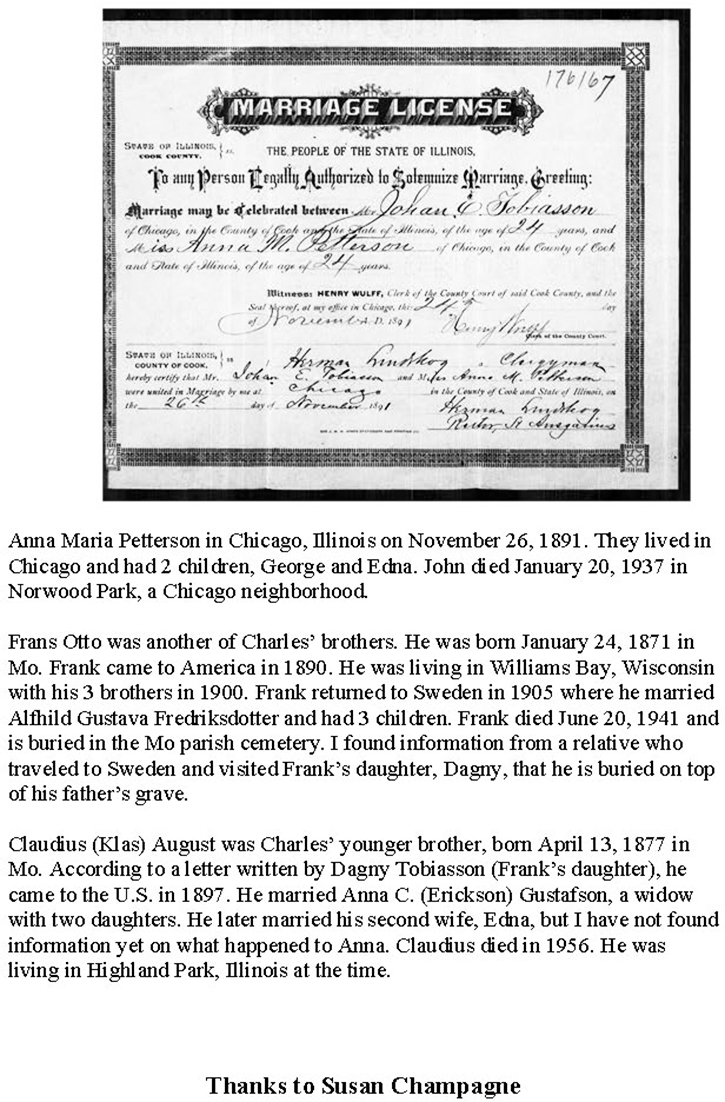 176167
MARRIAGE LICENSE
STATE OF ILLINOIS, } ss.
COOK COUNTY.
THE PEOPLE OF THE STATE OF ILLINOIS,
To any Person Legally Authorized to Solemnize Marriage, Greeting:
Marriage may be Celebrated between Mr. Johan E. Tobiasson
of Chicago, in the County of Cook and the State of Illinois, of the age of 24 years, and
Miss Anna M. Petterson of Chicago, in the County of Cook
and State of Illinois, of the age of 24 years.
Witness: HENRY WULFF, Clerk of the County Court of said Cook County, and the
Seal thereof, at my office in Chicago, this 24th day
of November A.D. 1891 Henry Wulff
Clerk of the County Court.
STATE OF ILLINOIS, } ss
COUNTY OF COOK, I, Herman Lindskog a Clergyman
hereby certify that Mr. Johan E. Tobiasson and Miss Anna M. Petterson
were united in Marriage by me at Chicago in the County of Cook and State of Illinois, on
the 26th day of November 1891 Herman Lindskog
Rector, St Ansgarius
Anna Maria Petterson in Chicago, Illinois on November 26, 1891. They lived in
Chicago and had 2 children, George and Edna. John died January 20, 1937 in
Norwood Park, a Chicago neighborhood.
Frans Otto was another of Charles’ brothers. He was born January 24, 1871 in
Mo. Frank came to America in 1890. He was living in Williams Bay, Wisconsin
with his 3 brothers in 1900. Frank returned to Sweden in 1905 where he married
Alfhild Gustava Fredriksdotter and had 3 children. Frank died June 20, 1941 and
is buried in the Mo parish cemetery. I found information from a relative who
traveled to Sweden and visited Frank’s daughter, Dagny, that he is buried on top
of his father’s grave.
Claudius (Klas) August was Charles’ younger brother, born April 13, 1877 in
Mo. According to a letter written by Dagny Tobiasson (Frank’s daughter), he
came to the U.S. in 1897. He married Anna C. (Erickson) Gustafson, a widow
with two daughters. He later married his second wife, Edna, but I have not found
information yet on what happened to Anna. Claudius died in 1956. He was
living in Highland Park, Illinois at the time.
Thanks to Susan Champagne